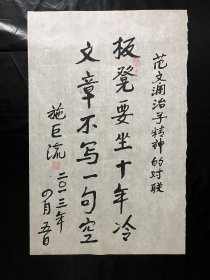 范文澜治学精神的对联
板凳要坐十年冷
文章不写一句空
施巨流
二〇一三年
四月五日